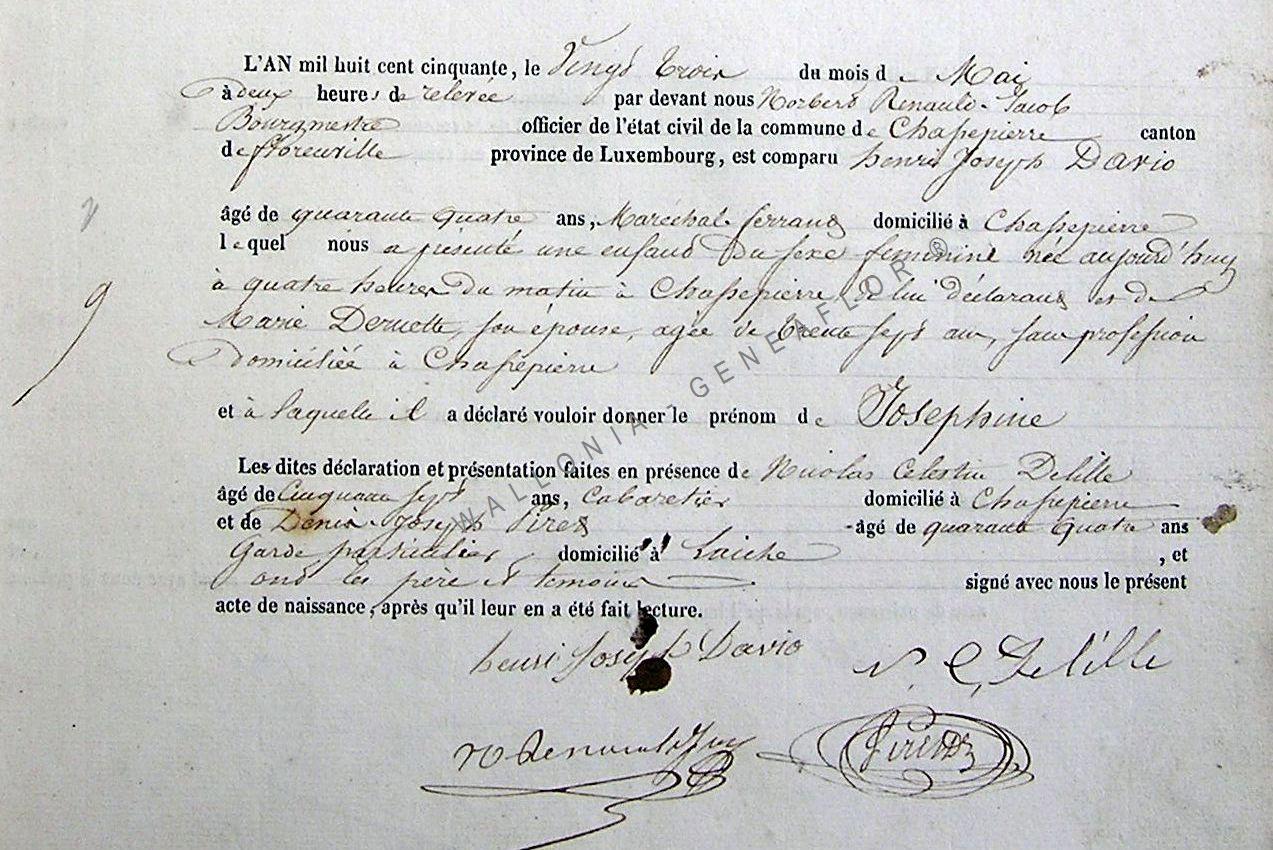 L'AN mil huit cent cinquante, le Vingt trois du mois de Mai
à deux heures de relevée par devant nous Norbert Renauld-Jacob
Bourgmestre officier de l'état civil de la commune de Chassepierre canton
de florenville province de Luxembourg, est comparu henri Joseph Davio
âgé de quarante quatre ans, Maréchal-ferrant domicilié à Chassepierre
lequel nous a présenté une enfant du sexe feminine née aujourd'huy
à quatre heures du matin à Chassepierre de lui déclarant et de
Marie Deruette, son épouse, agée de trente sept ans, sans profession
domiciliée à Chassepierre
et à laquelle il a déclaré vouloir donner le prénom de Josephine
Les dites déclaration et présentation faites en présence de Nicolas Celestin Delille
âgé de Cinquante sept ans, Cabaretier domicilié à Chassepierre
et de Denis-Joseph Piret âgé de quarante quatre ans
Garde particulier domicilié à Laiche, et
ont les père et temoins signé avec nous le présent
acte de naissance, après qu'il leur en a été fait lecture.
henri Joseph Davio N. C. Delille
9
WALLONIA - GENEAFLOR ®